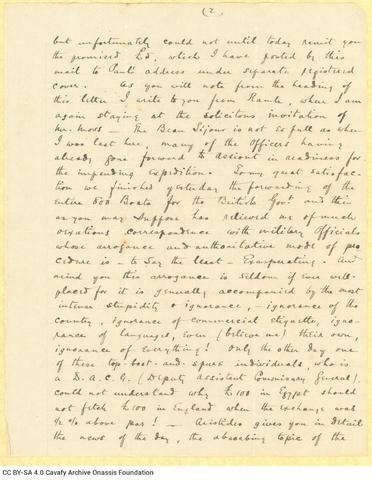 (2)
but unfortunately could not until today remit you
the promised £d, which I have posted by this
mail to Paul's address under separate registered
cover. As you will note from the heading of
this letter I write to you from Ramleh, where I am
again staying at the solicitous invitation of
Mr. Moss — The Beau Séjour is not as full as when
I was last here, many of the Officers having
already gone forward to Assiout in readiness for
the impending expedition. To my great satisfac-
tion we finished yesterday the forwarding of the
entire 800 Boats for the British Govt and this
as you may suppose has relieved me of much
vexatious correspondence with Military Officials
whose arrogance and authoritative mode of pro
cedure is — to say the least — Exasperating. And
mind you this arrogance is seldom if ever well-
placed for it is generally accompanied by the most
intense stupidity & ignorance, — ignorance of the
country, ignorance of commercial etiquette, igno-
rance of languages, even (believe me) their own,
ignorance of everything! Only the other day one
of these top-boot-and-spurs individuals, who is
a D. A. C. G. (Deputy Assistant Commissary General),
could not understand why £100 in Egypt should
not fetch £100 in England when the exchange was
½ % above par! — Aristides gives you in detail
the news of the day, the absorbing topic of the
CC BY-SA 4.0 Cavafy Archive Onassis Foundation